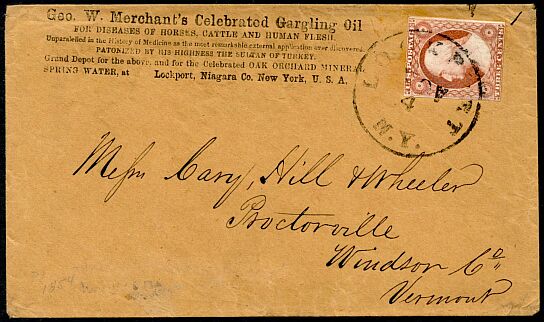 Geo. W. Merchant's Celebrated Gargling Oil
FOR DISEASES OF HORSES, CATTLE AND HUMAN FLESH.
Unparalleled in the History of Medicine as the most remarkable external application ever discovered.
PATONIZED BY HIS HIGHNESS THE SULTAN OF TURKEY.
Grand Depot for the above, and for the Celebrated OAK ORCHARD MINERAL
SPRING WATER, at Lockport, Niagara Co. New York, U. S. A.
LOCKPORT
N.Y.
Messrs Cary, Hill & Wheeler
Proctorville
Windsor Co
Vermont
1854